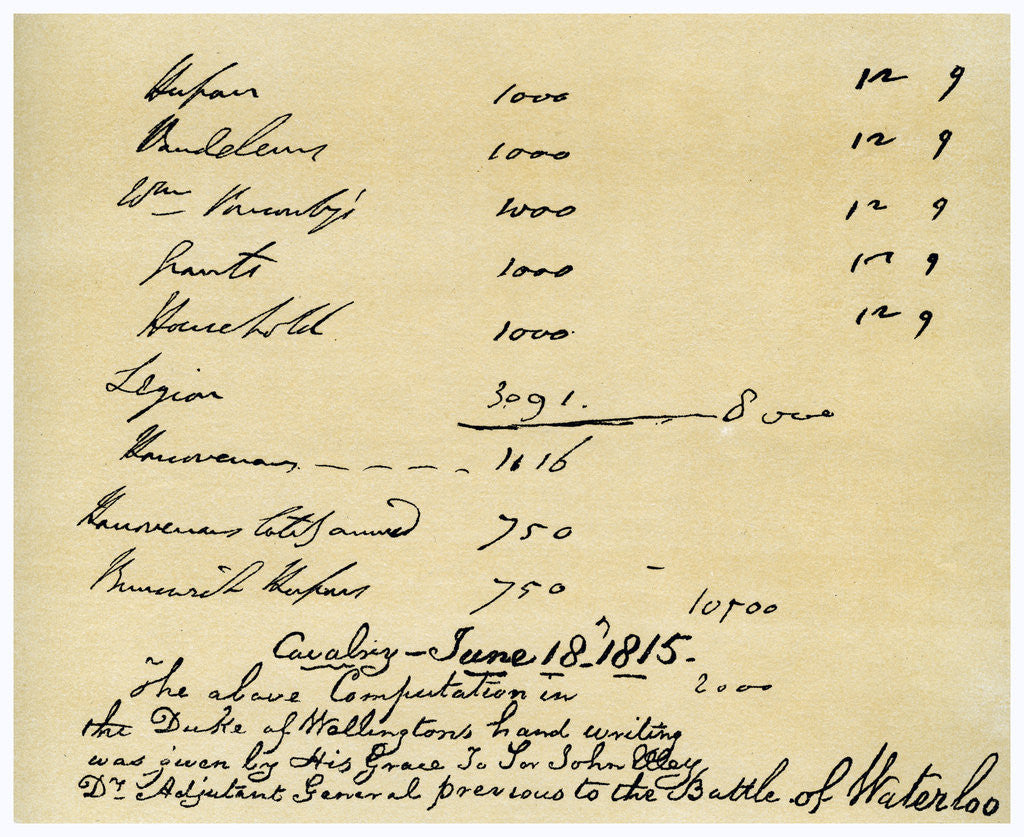 Hussars 1000 12 9
Vandeleurs 1000 12 9
Wm Ponsonby's 1000 12 9
Grants 1000 12 9
Household 1000 12 9
Legion 3091. 8000
Hanoverians - - - - 1116
Hanoverians 750
Brunswick Hussars 750 - 10500
Cavalry - June 18, 1815 -
The above Computation in 2000
the Duke of Wellingtons hand writing
was given by His Grace To Sir John Elley
Dy Adjutant General previous to the Battle of Waterloo